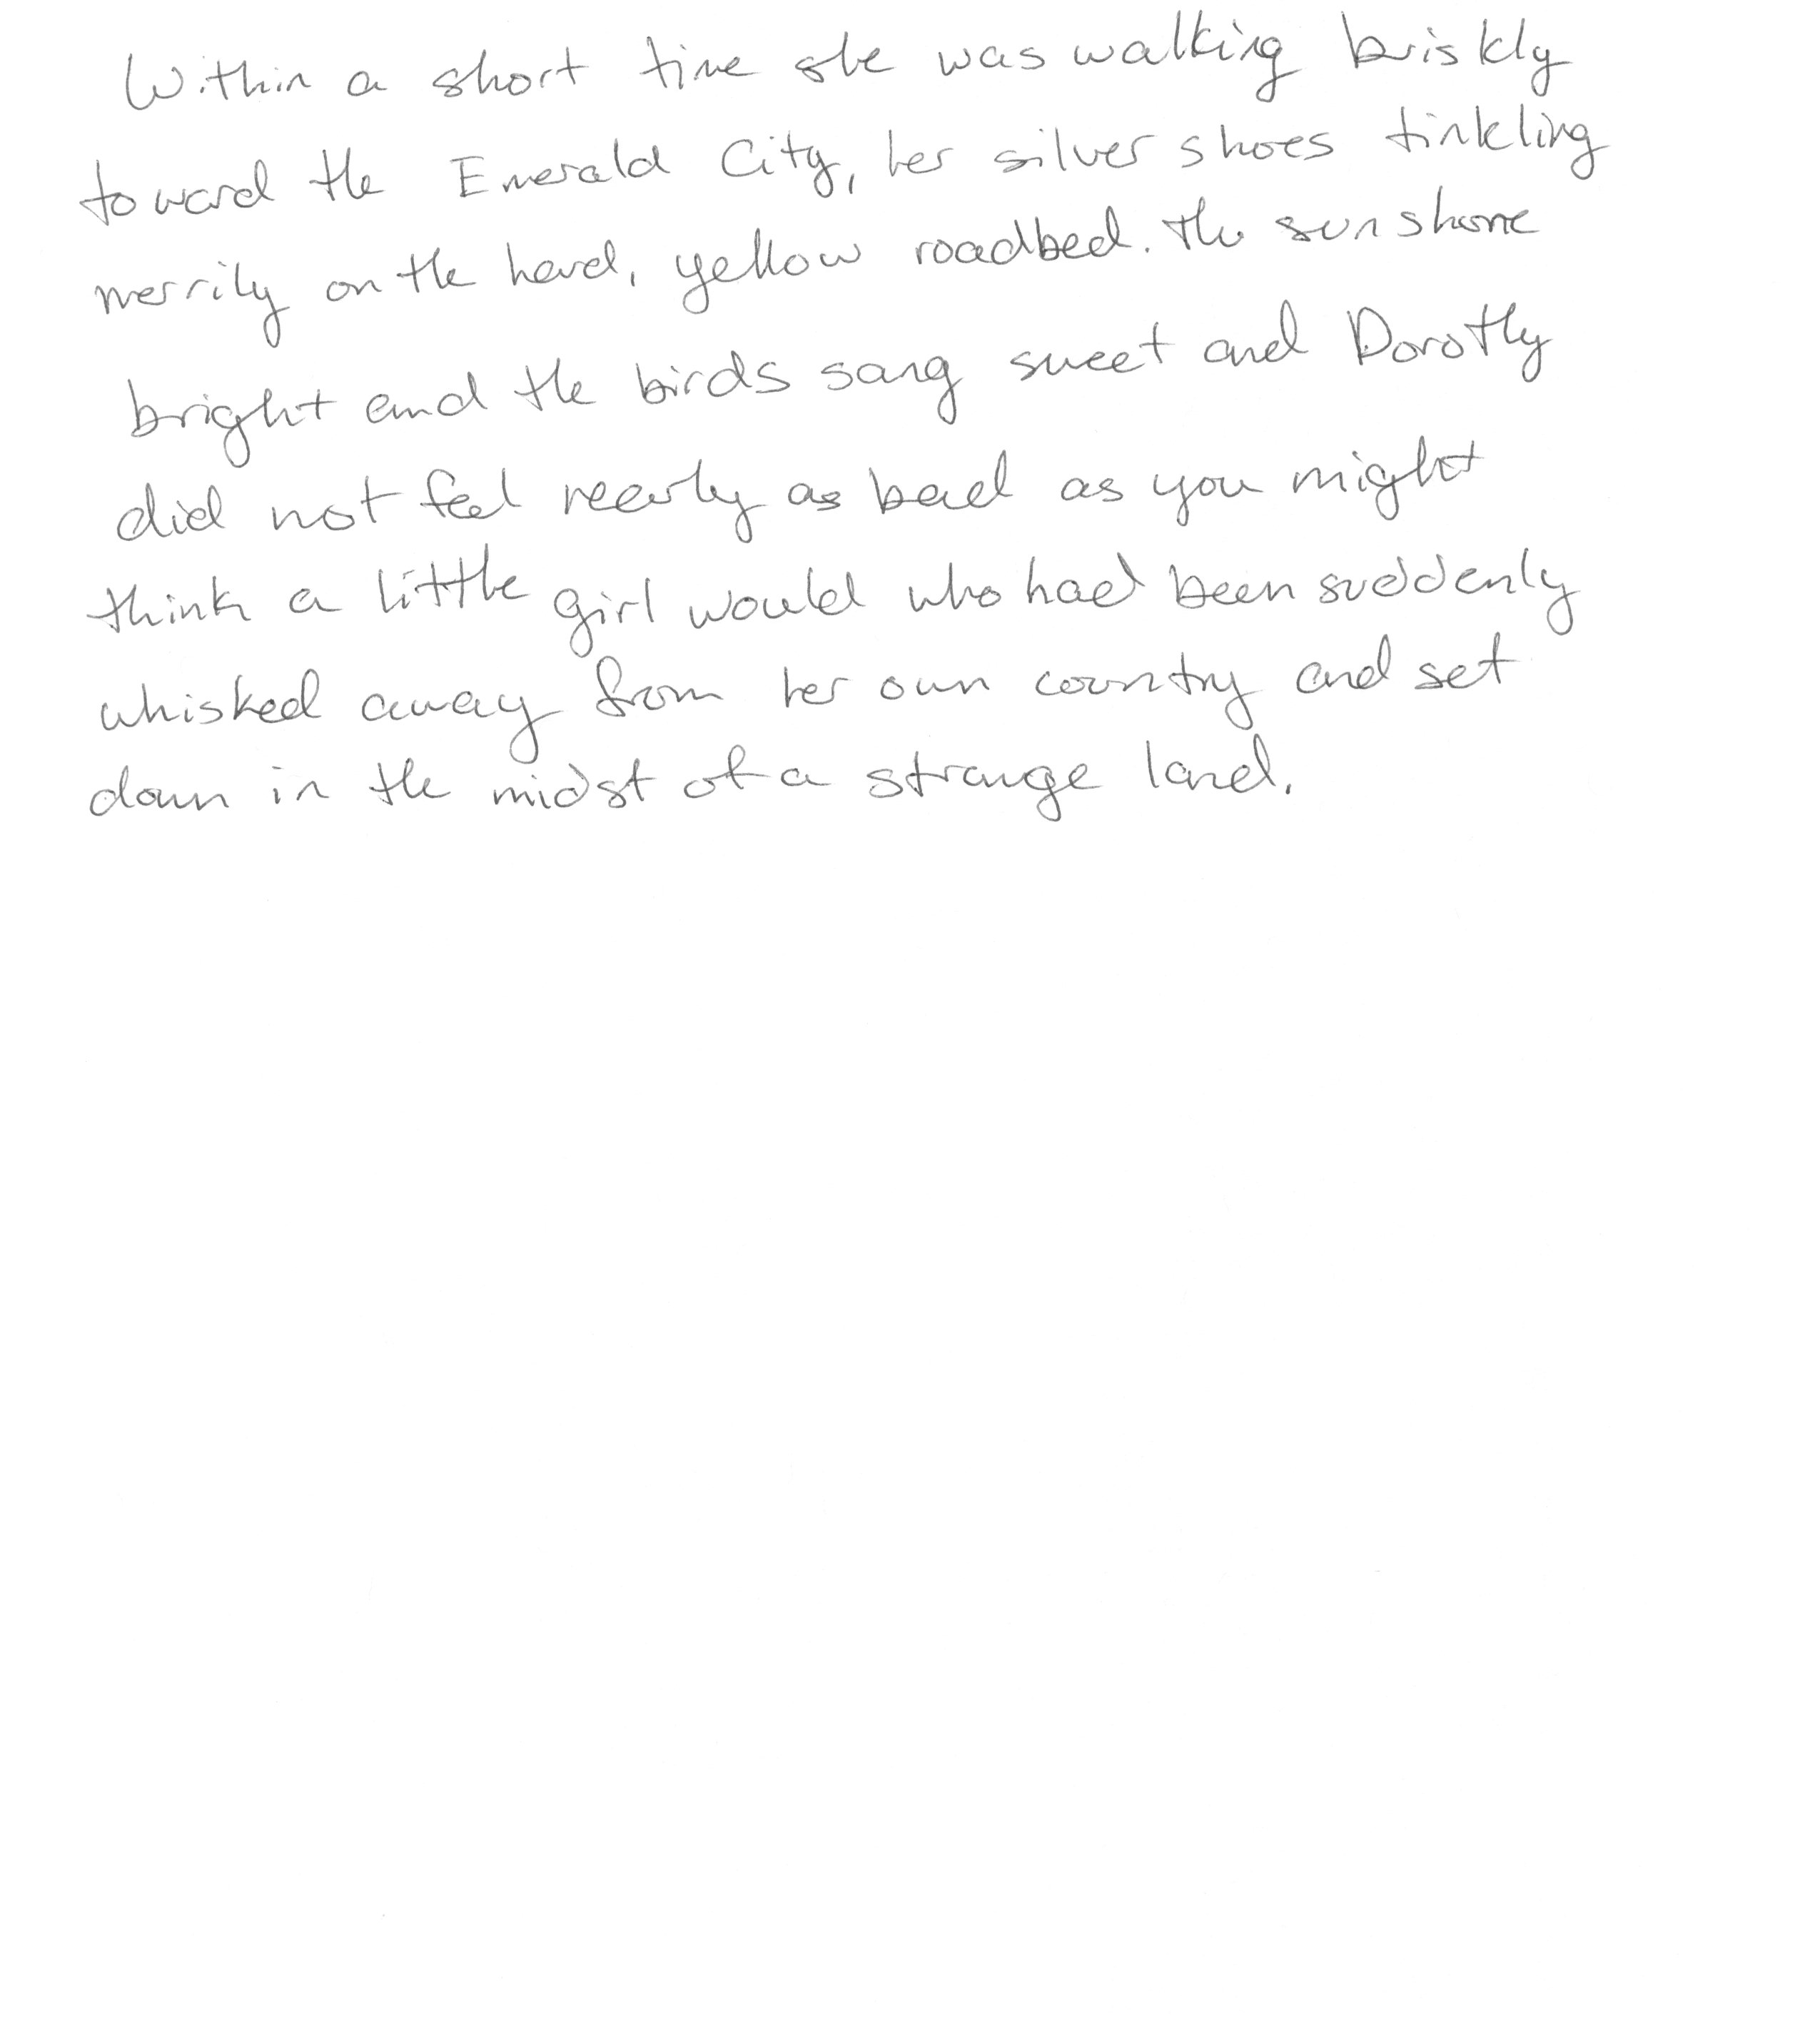 Within a short time she was walking briskly
toward the Emerald City, her silver shoes tinkling
merrily on the hard, yellow roadbed. The sun shone
bright and the birds sang sweet and Dorothy
did not feel nearly as bad as you might
think a little girl would who had been suddenly
whisked away from her own country and set
down in the midst of a strange land.